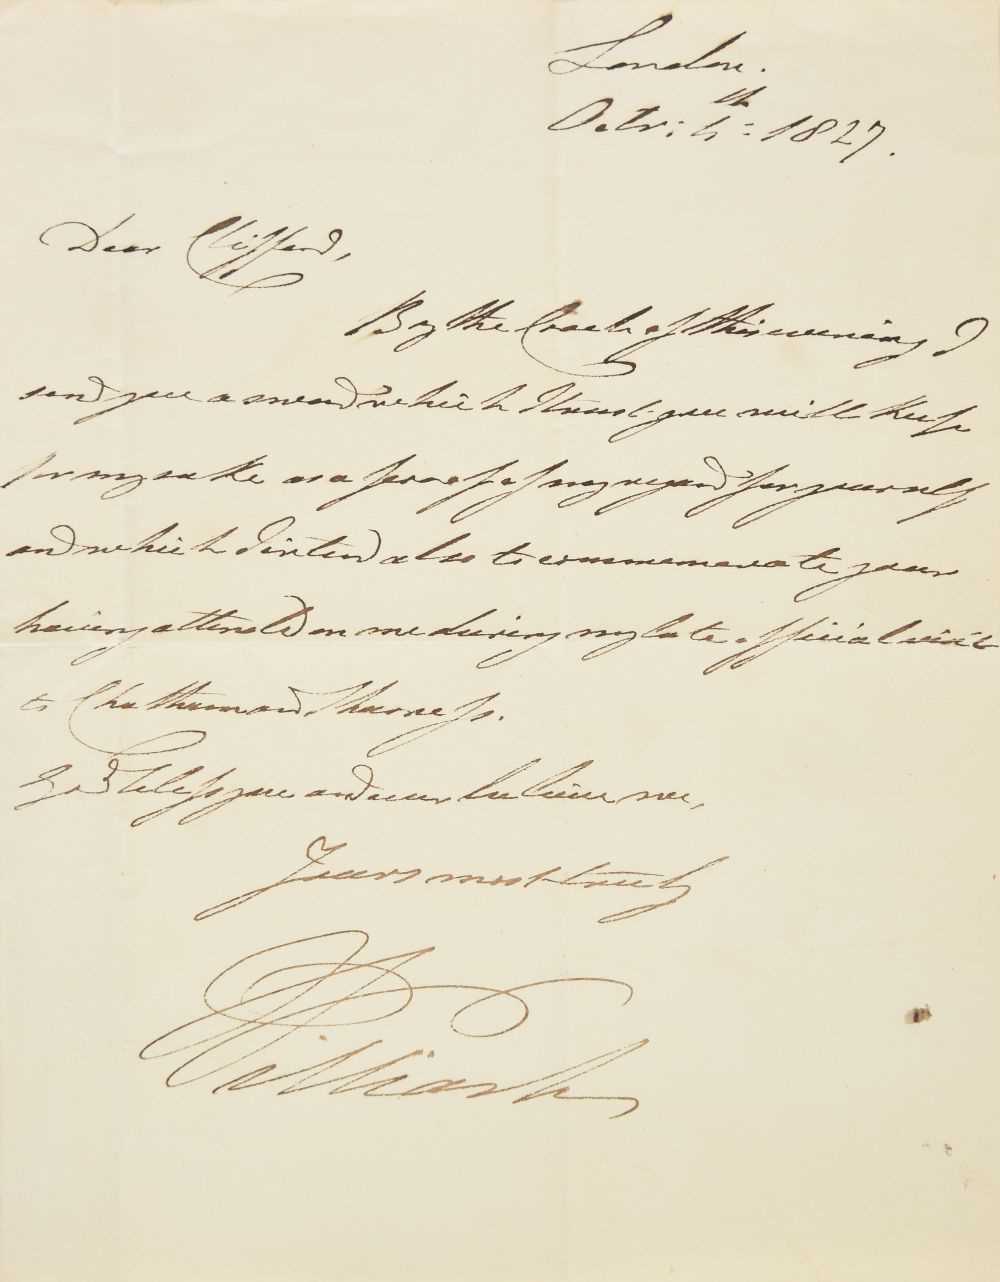 London.
Octr: 4th = 1827.
Dear Clifford,
By the Coach of this evening I
send you a sword which I trust you will keep
for my sake as a proof of my regard for yourself
and which I intend also to commemorate your
having attended on me during my late official visit
to Chatham and Sheerness.
God bless you and ever believe me,
Yours most truly
William